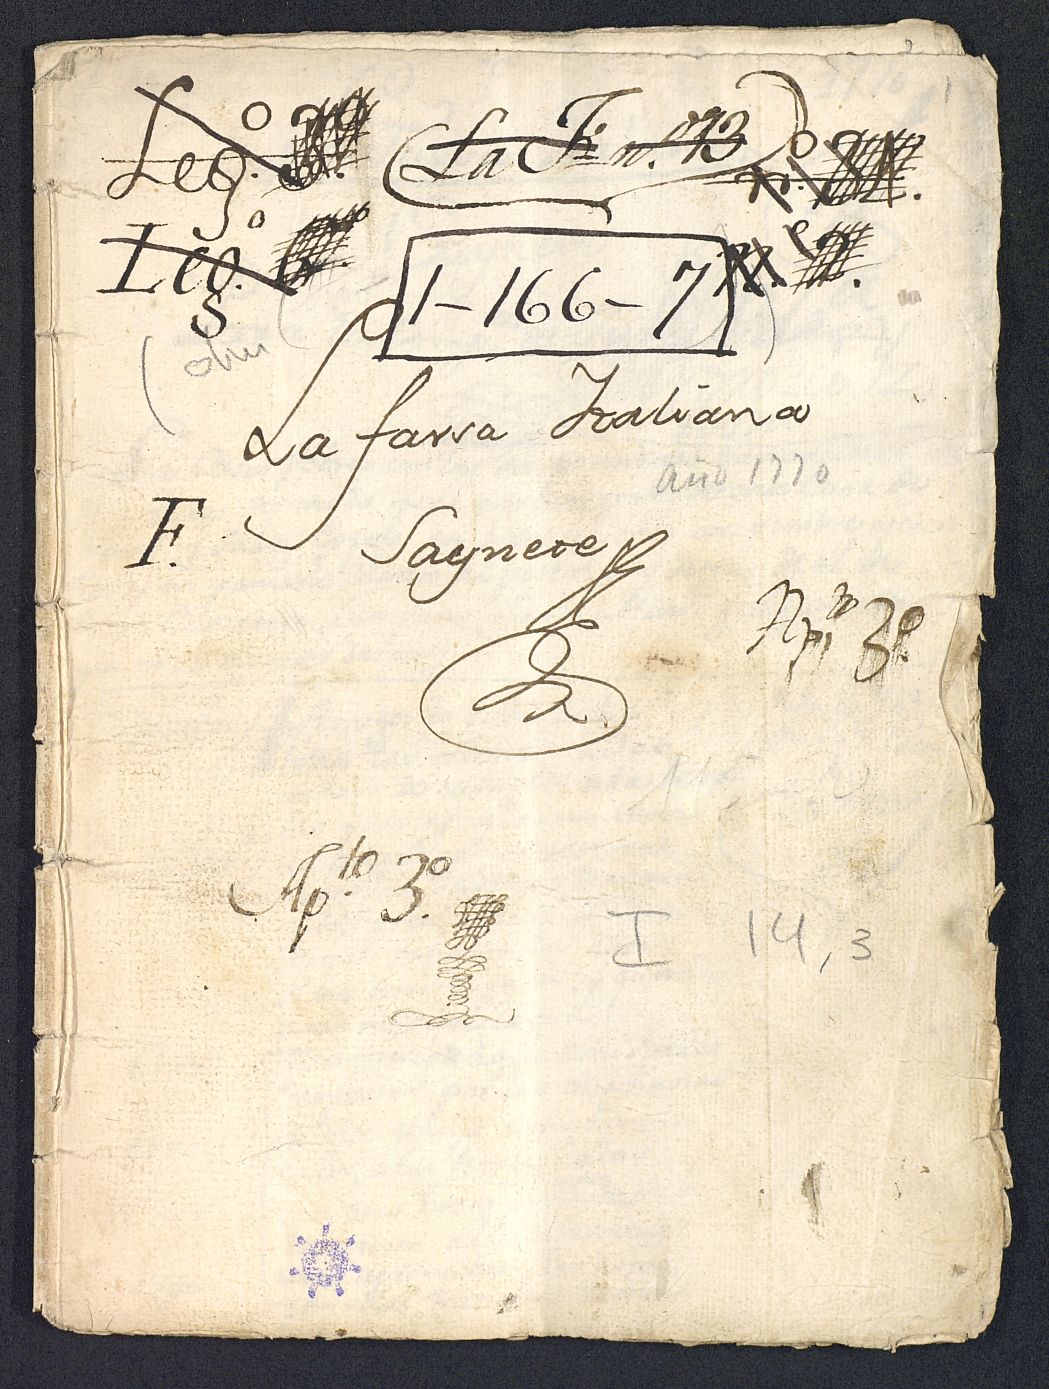 Leg.º (La F. n.º 13) n.º
Leg.º
1-166-7
La farsa Italiana
año 1770
F. Saynete
Ap.to 3º
Ap.to 3º
I 14,3